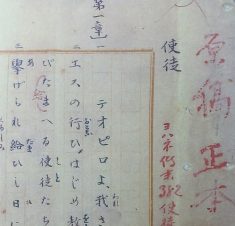 原稿正本
使徒
使徒
第一章】一 テオピロよ、我さ
エスの行ひはじめ教
びたまへる使徒たち
擧げられ給ひし日に